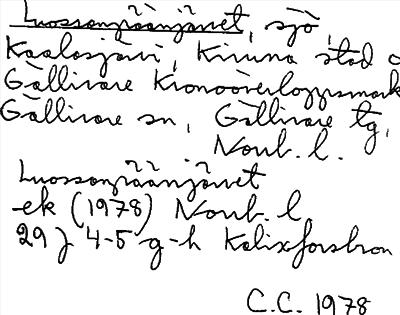 Luossonpäänjävvet, sjö,
Kaalasjärvi, Kiruna stad o
Gällivare Kronoöverloppsmark
Gällivare sn, Gällivare tg,
Norrb. l.
Luossonpäänjävvet
-ek (1978) Norrb. l
29 J 4-5 g-h Kalixforsbron
C.C. 1978